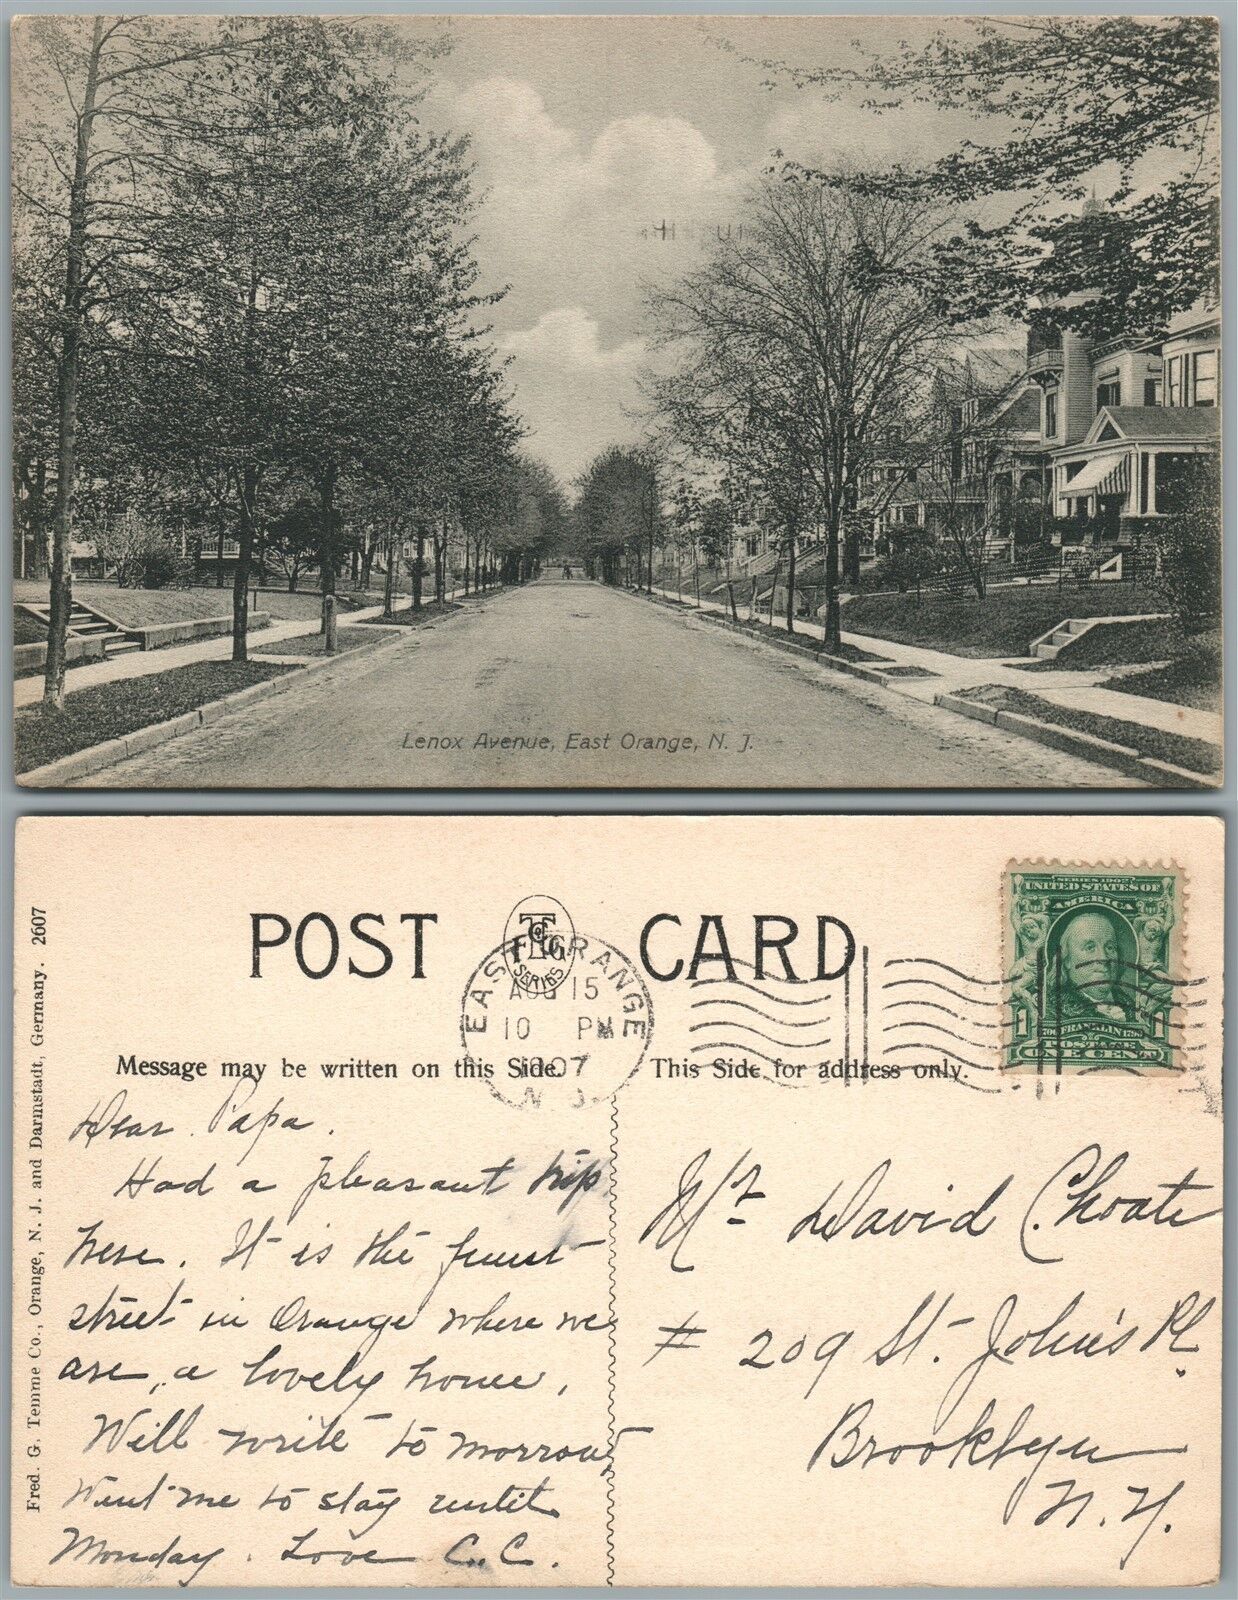 Lenox Avenue, East Orange, N. J.
POST CARD
F T G Co
SERIES
EAST ORANGE
AUG 15
10 PM
1907
N. J.
SERIES 1902
UNITED STATES OF
AMERICA
1 1
FRANKLIN
POSTAGE
ONE CENT
Message may be written on this Side.
This Side for address only.
Fred. G. Temme Co., Orange, N. J. and Darmstadt, Germany. 2607
Dear Papa.
Had a pleasant trip
here. It is the finest
street in Orange where we
are, a lovely home.
Will write to morrow,
Want me to stay until
Monday. Love C. C.
Mr David Choate
# 209 St. John's Pl.
Brooklyn
N. Y.